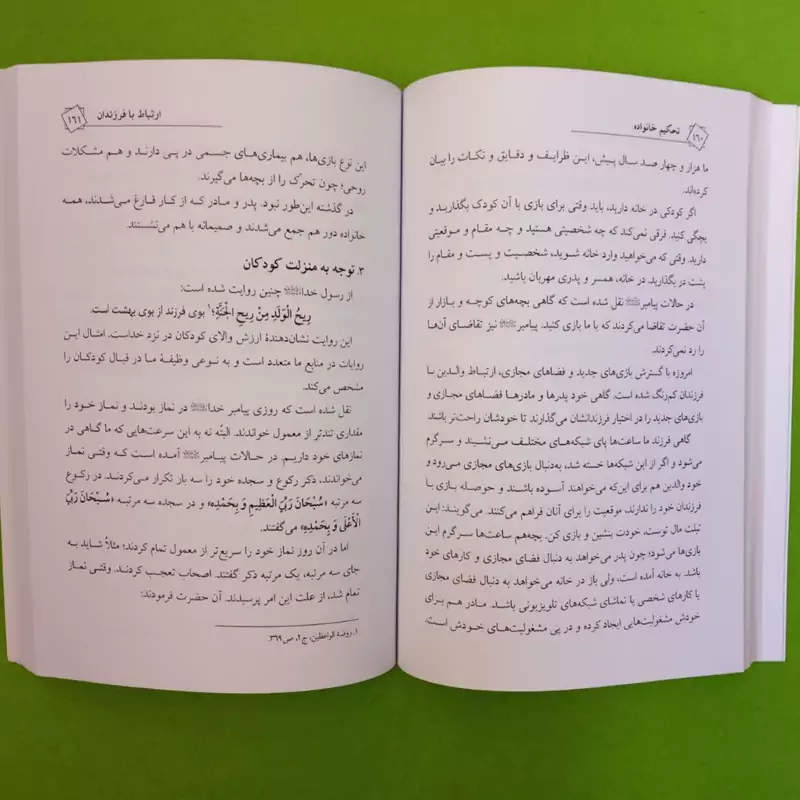 تحکیم خانواده
۱۶۰
ما هزار و چهار صد سال پیش، این ظرایف و دقایق و نکات را بیان
کرده‌اند.
اگر کودکی در خانه دارید، باید وقتی برای بازی با آن کودک بگذارید و
بچگی کنید. فرقی نمی‌کند که چه شخصیتی هستید و چه مقام و موقعیتی
دارید. وقتی که می‌خواهید وارد خانه شوید، شخصیت و پست و مقام را
پشت در بگذارید. در خانه، همسر و پدری مهربان باشید.
در حالات پیامبرﷺ نقل شده است که گاهی بچه‌های کوچه و بازار از
آن حضرت تقاضا می‌کردند که با ما بازی کنید. پیامبرﷺ نیز تقاضای آن‌ها
را رد نمی‌کردند.
امروزه با گسترش بازی‌های جدید و فضاهای مجازی، ارتباط والدین با
فرزندان کم‌رنگ شده است. گاهی خود پدرها و مادرها فضاهای مجازی و
بازی‌های جدید را در اختیار فرزندانشان می‌گذارند تا خودشان راحت‌تر باشند.
گاهی فرزند ما ساعت‌ها پای شبکه‌های مختلف می‌نشیند و سرگرم
می‌شود و اگر از این شبکه‌ها خسته شد، به‌دنبال بازی‌های مجازی می‌رود و
خود والدین هم برای این‌که می‌خواهند آسوده باشند و حوصله بازی با
فرزندان خود را ندارند، موقعیت را برای آنان فراهم می‌کنند. می‌گویند: این
تبلت مال توست، خودت بنشین و بازی کن. بچه‌هم ساعت‌ها سرگرم این
بازی‌ها می‌شود؛ چون پدر می‌خواهد به دنبال فضای مجازی و کارهای خود
باشد. به خانه آمده است، ولی باز در خانه می‌خواهد به دنبال فضای مجازی
یا کارهای شخصی یا تماشای شبکه‌های تلویزیونی باشد. مادر هم برای
خودش مشغولیت‌هایی ایجاد کرده و در پی مشغولیت‌های خودش است.
ارتباط با فرزندان
۱۶۱
این نوع بازی‌ها، هم بیماری‌های جسمی در پی دارند و هم مشکلات
روحی؛ چون تحرّک را از بچه‌ها می‌گیرند.
در گذشته این‌طور نبود. پدر و مادر که از کار فارغ می‌شدند، همه
خانواده دور هم جمع می‌شدند و صمیمانه با هم می‌نشستند.
۳. توجه به منزلت کودکان
از رسول خداﷺ چنین روایت شده است:
رِیحُ الْوَلَدِ مِنْ رِیحِ الْجَنَّةِ؛۱ بوی فرزند از بوی بهشت است.
این روایت نشان‌دهندهٔ ارزش والای کودکان در نزد خداست. امثال این
روایات در منابع ما متعدد است و به نوعی وظیفهٔ ما در قبال کودکان را
مشخص می‌کند.
نقل شده است که روزی پیامبر خداﷺ در نماز بودند و نماز خود را
مقداری تندتر از معمول خواندند. البتّه نه به این سرعت‌هایی که ما گاهی در
نمازهای خود داریم. در حالات پیامبرﷺ آمده است که وقتی نماز
می‌خواندند، ذکر رکوع و سجده خود را سه بار تکرار می‌کردند. در رکوع
سه مرتبه «سُبْحَانَ رَبِّیَ الْعَظِیمِ وَ بِحَمْدِهِ» و در سجده سه مرتبه «سُبْحَانَ رَبِّیَ
الْأَعْلَی وَ بِحَمْدِهِ» می‌گفتند.
اما در آن روز نماز خود را سریع‌تر از معمول تمام کردند؛ مثلاً شاید به
جای سه مرتبه، یک مرتبه ذکر گفتند. اصحاب تعجب کردند. وقتی نماز
تمام شد، از علت این امر پرسیدند. آن حضرت فرمودند:
۱. روضة الواعظین، ج۲، ص۳۶۹.